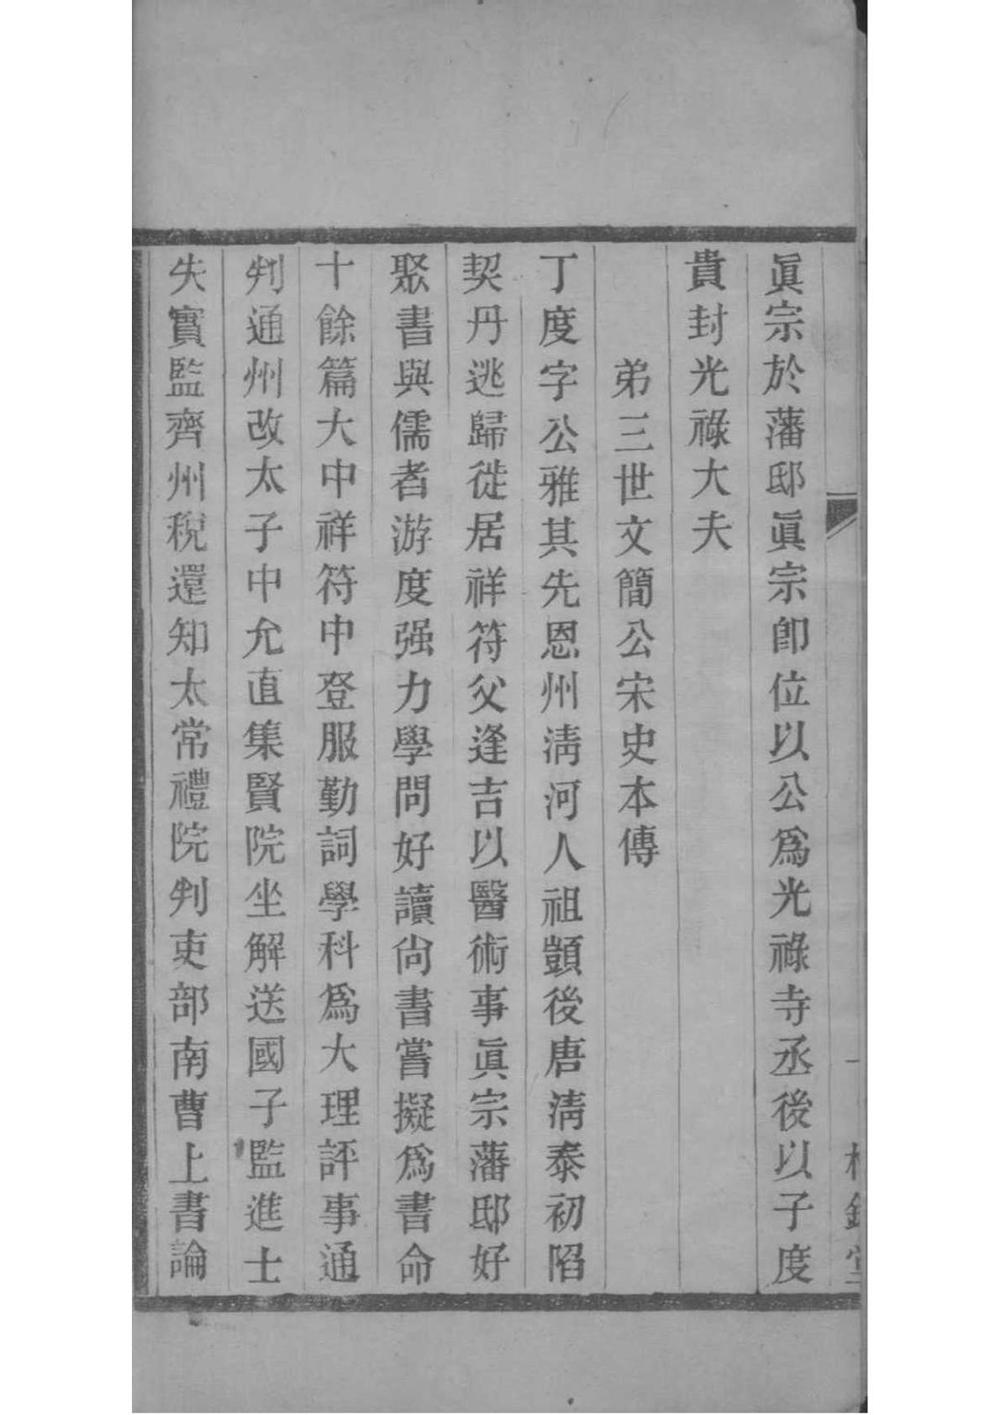 眞宗於藩邸眞宗卽位以公爲光祿寺丞後以子度
貴封光祿大夫
弟三世文簡公宋史本傳
丁度字公雅其先恩州淸河人祖顗後唐淸泰初陷
契丹逃歸徙居祥符父逢吉以醫術事眞宗藩邸好
聚書與儒者游度强力學問好讀尙書嘗擬爲書命
十餘篇大中祥符中登服勤詞學科爲大理評事通
判通州改太子中允直集賢院坐解送國子監進士
失實監齊州稅還知太常禮院判吏部南曹上書論